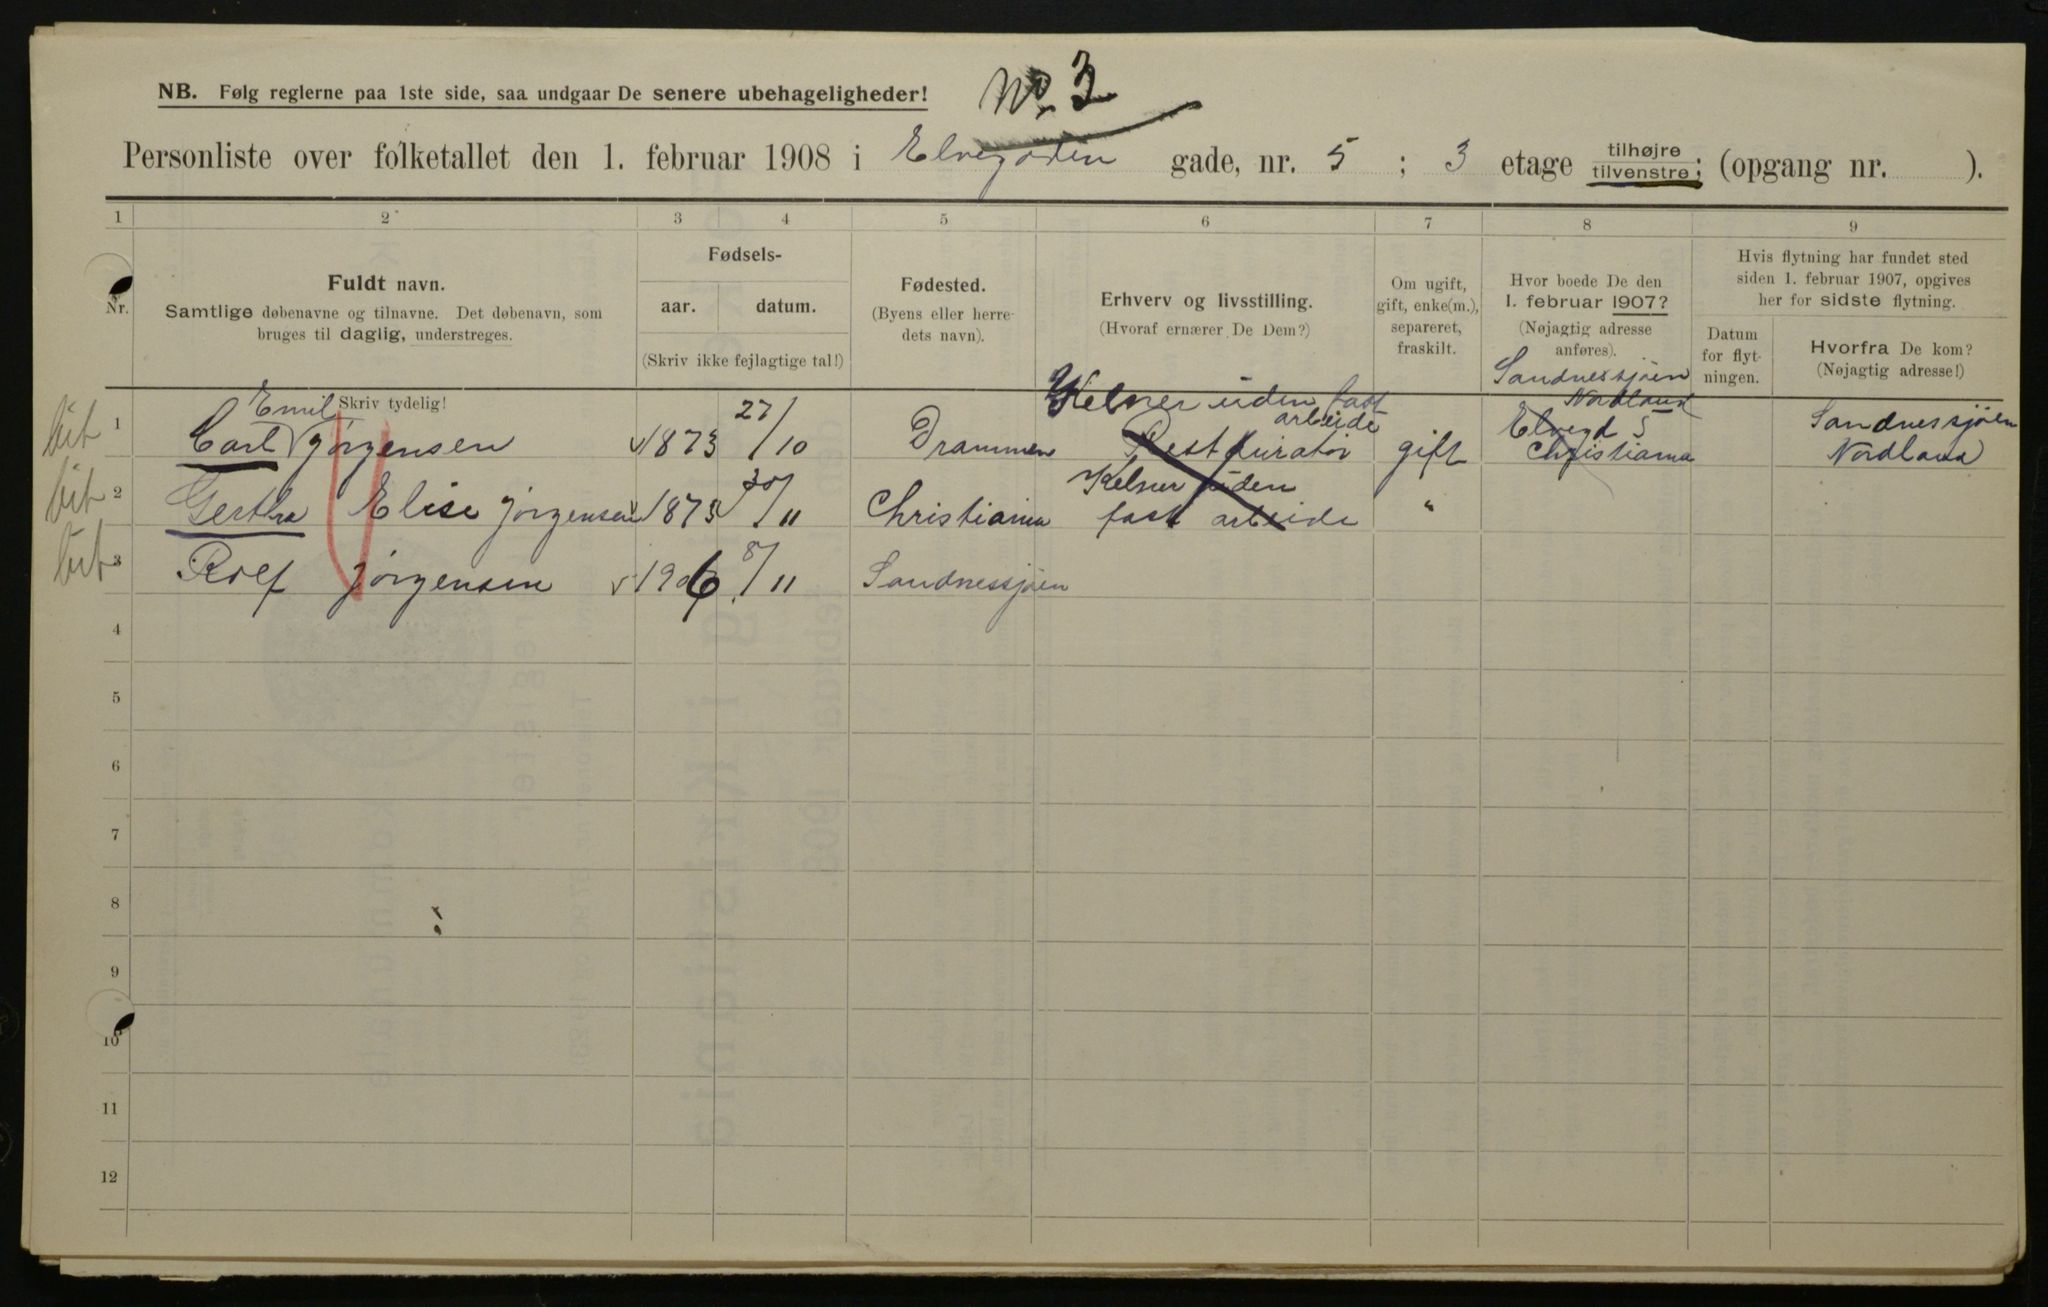 No. 3
NB. Følg reglerne paa 1ste side, saa undgaar De senere ubehageligheder!
Personliste over folketallet den 1. februar 1908 i Elvegaden gade, nr. 5 ; 3 etage tilhøjre tilvenstre; (opgang nr. ).
1 2 3 4 5 6 7 8 9
Nr.
Fuldt navn.
Samtlige døbenavne og tilnavne. Det døbenavn, som
bruges til daglig, understreges.
Skriv tydelig!
Fødsels-
aar. datum.
(Skriv ikke fejlagtige tal!)
Fødested.
(Byens eller herre-
dets navn).
Erhverv og livsstilling.
(Hvoraf ernærer De Dem?)
Om ugift,
gift, enke(m.),
separeret,
fraskilt.
Hvor boede De den
1. februar 1907?
(Nøjagtig adresse
anføres).
Hvis flytning har fundet sted
siden 1. februar 1907, opgives
her for sidste flytning.
Datum
for flyt-
ningen.
Hvorfra De kom?
(Nøjagtig adresse!)
Sandnessjöen
Nordland
Emil
Kelner uden fast
arbeide
1 Carl Jörgensen 1873 27/10 Drammen Restauratör gift Elvegd 5 Sandnessjöen
Christiania Nordland
2 Gerthra Elise Jörgensen 1873 30/11 Christiania Kelner uden "
fast arbeide
3 Rolf Jörgensen 1906 8/11 Sandnessjöen
4
5
6
7
8
9
10
11
12